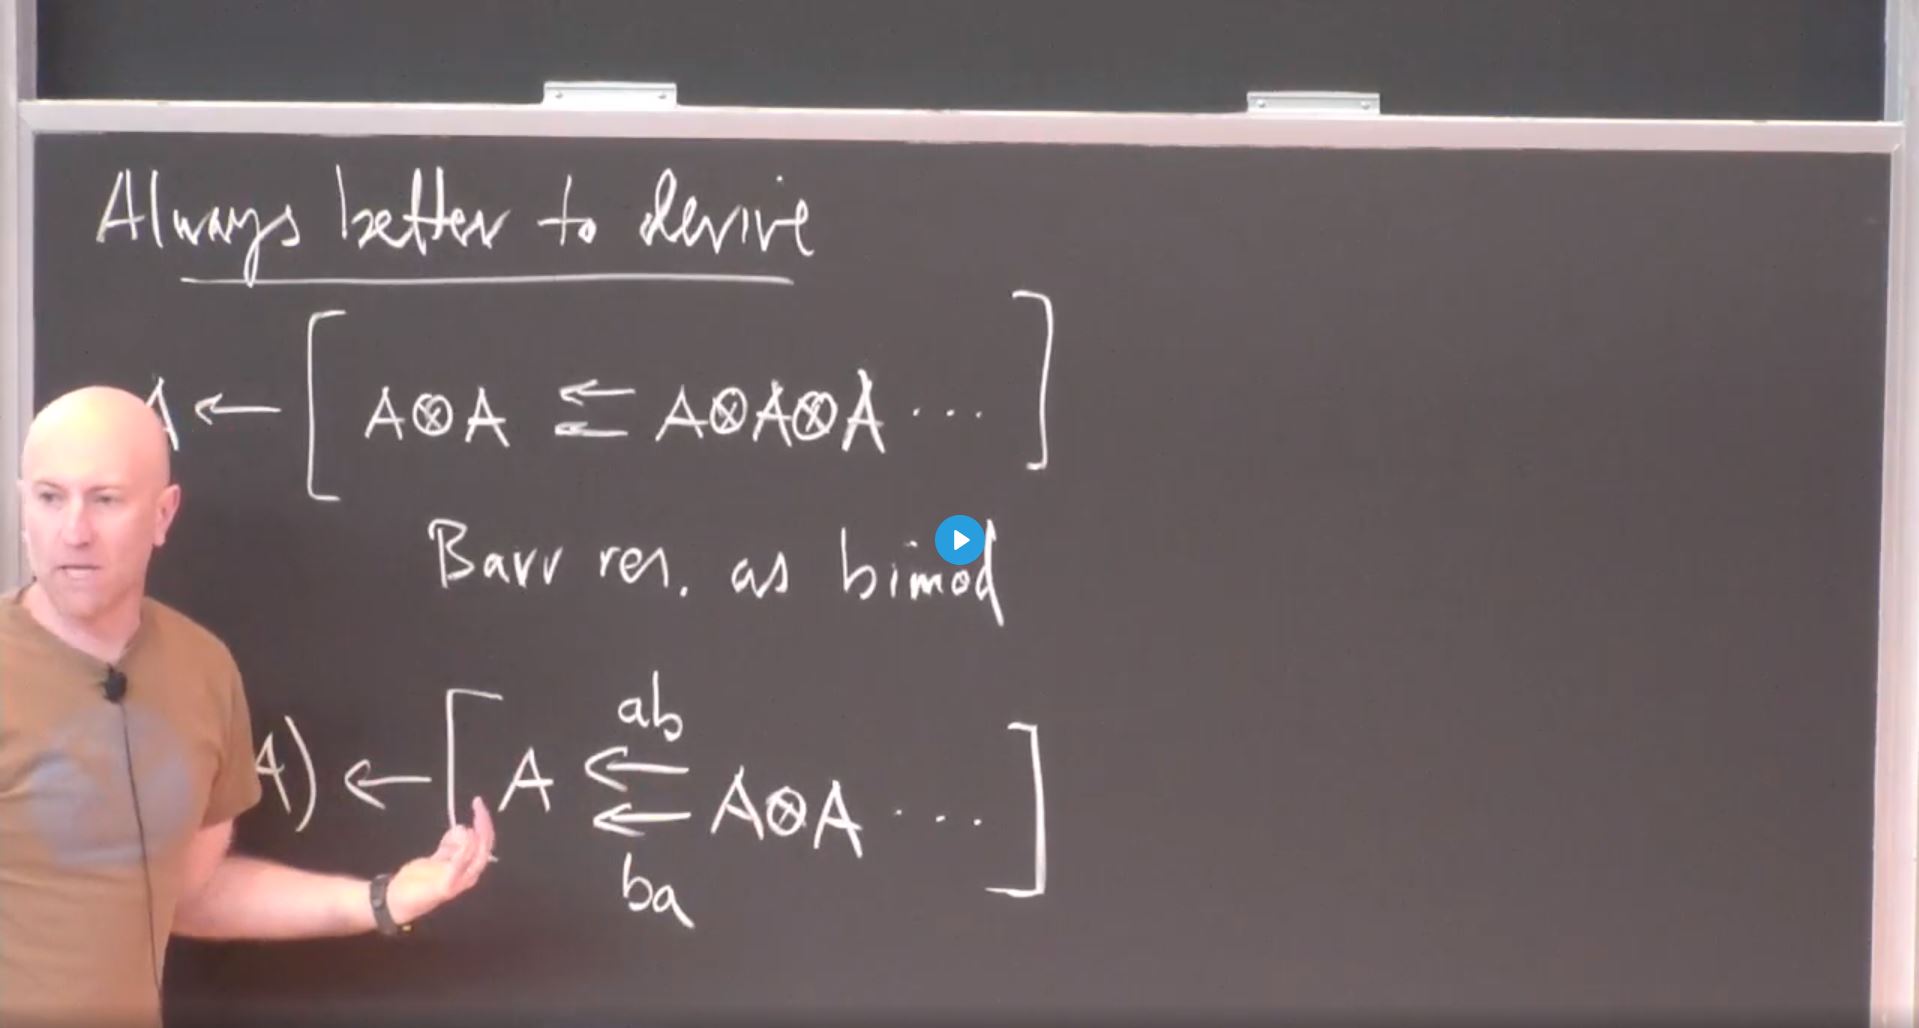 Always better to derive
A ← [ A⊗A ⇇ A⊗A⊗A ... ]
Barr res. as bimod
ab
A) ← [ A ⇇ A⊗A ... ]
ba